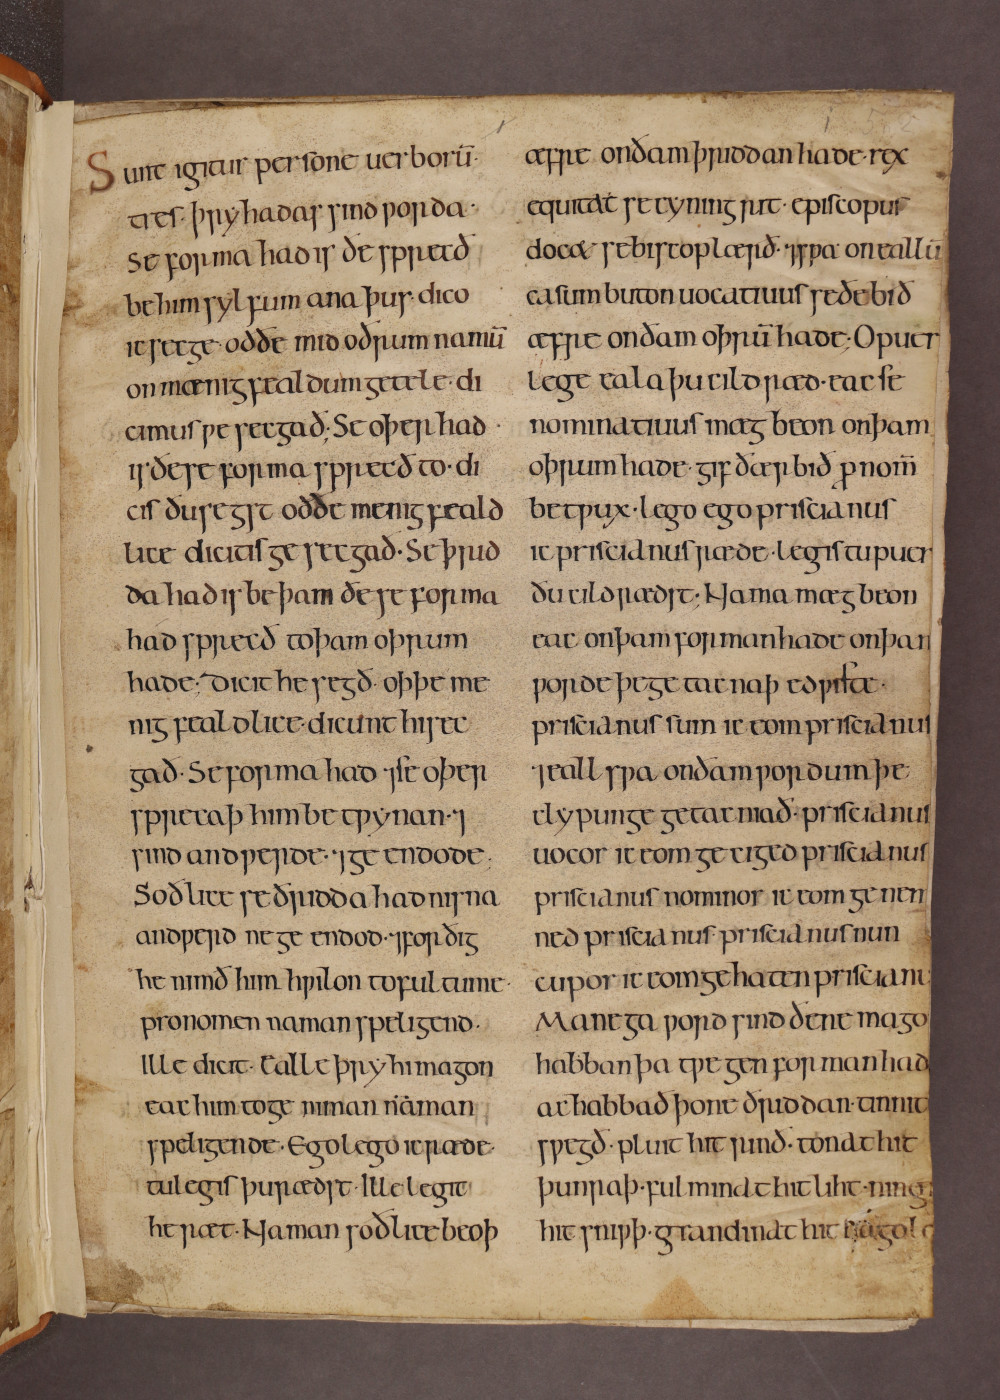 Sunt igitur persone uerborū·
tres· þry hadas sind ƿorda·
Se forma had is ðe sprecð
be him sylfum ana þus· dico
ic secge· oððe mid oðrum namū
on mænigfealdum getele· di
cimus ƿe secgað; Se oþer had·
is ðe se forma sprecð to· di
cis ðu segst oððe menigfeald
lice dicitis ge secgað· Se þrid
da had is be þam ðe se forma
had sprecð to þam oþrum
hade; Dicit he segð· oþþe me
nigfealdlice· dicunt hi sec
gað· Se forma had ⁊ se oþer
sprecaþ him betƿynan· ⁊
sind andƿerde· ⁊ geendode;
Soðlice se ðridda had nis na
andƿerd ne geendod· ⁊ forðig
he nimð him hƿilon to fultume·
pronomen naman speligend·
Ille dicit· Ealle þry hi magon
eac him to geniman naman
speligende· Ego lego ic ræde·
tu legis þu rædst· Ille legit
he ræt· Naman soðlice beoþ
æfre on ðam þriddan hade· rex
equitat se cyning rit· episcopus
docet se bisceop lærð· ⁊ sƿa on eallū
casum buton uocatiuus se ðe bið
æfre on ðam oþrū hade; O puer
lege eala þu cild ræd· eac se
nominatiuus mæg beon on þam
oþrum hade· gif ðær bið ꝓnom̄
betƿux· lego ego priscianus
ic priscianus ræde· legis tu puer
ðu cild rædst; Nama mæg beon
eac on þam forman hade on þan
ƿorde þe getacnaþ edƿiste·
priscianus sum ic eom priscianus
⁊ eall sƿa on ðam ƿordum þe
clypunge getacniað· priscianus
uocor ic eom geciged priscianus
priscianus nominor ic eom genem
ned priscianus priscianus nun
cupor ic eom gehaten priscianus
Manega ƿord sind ðe ne mago
habban þa tƿegen forman had
ac habbað þone ðriddan· tinnit
sƿegð· pluit hit rinð· tonat hit
þunraþ· fulminat hit liht· ningit
hit sniƿþ· grandinat hit hagolað